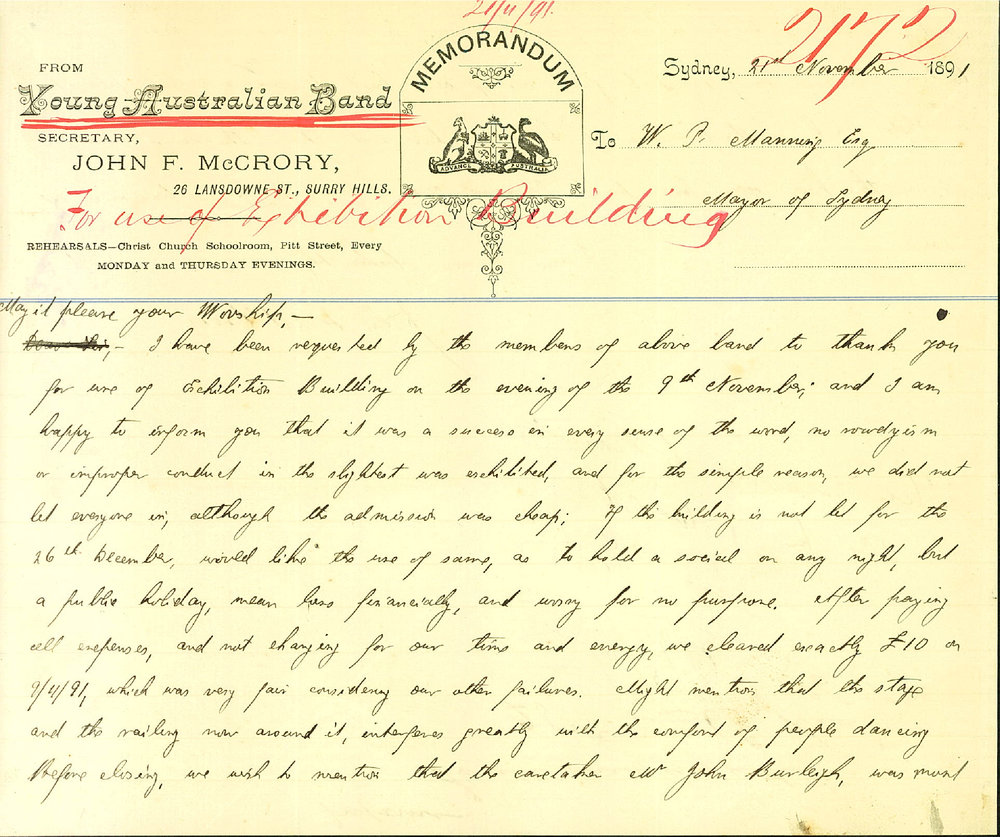 21/11/91.
2172
MEMORANDUM
FROM
Young Australian Band
SECRETARY,
JOHN F. McCRORY,
26 LANSDOWNE ST., SURRY HILLS.
ADVANCE AUSTRALIA
Sydney, 21st November 1891
To W. P. Manning Esq
Mayor of Sydney
For use of Exhibition Building
REHEARSALS—Christ Church Schoolroom, Pitt Street, Every
MONDAY and THURSDAY EVENINGS.
May it please your Worship,—
Dear Sir,— I have been requested by the members of above band to thank you
for use of Exhibition Building on the evening of the 9th November; and I am
happy to inform you that it was a success in every sense of the word, no rowdyism
or improper conduct in the slightest was exhibited, and for the simple reason, we did not
let everyone in, although the admission was cheap; If the building is not let for the
26th December, would like the use of same, as to hold a social on any night, but
a public holiday, mean loss financially, and worry for no purpose. After paying
all expenses, and not charging for our time and energy, we cleared exactly £10 on
9/11/91, which was very fair considering our other failures. Might mention that the stage
and the railing now around it, interferes greatly with the comfort of people dancing
Before closing, we wish to mention that the caretaker Mr John Burleigh, was most